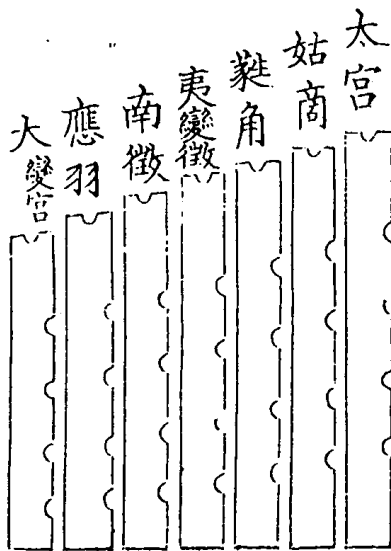 太宮
姑商
蕤角
夷變徵
南徵
應羽
大變宮